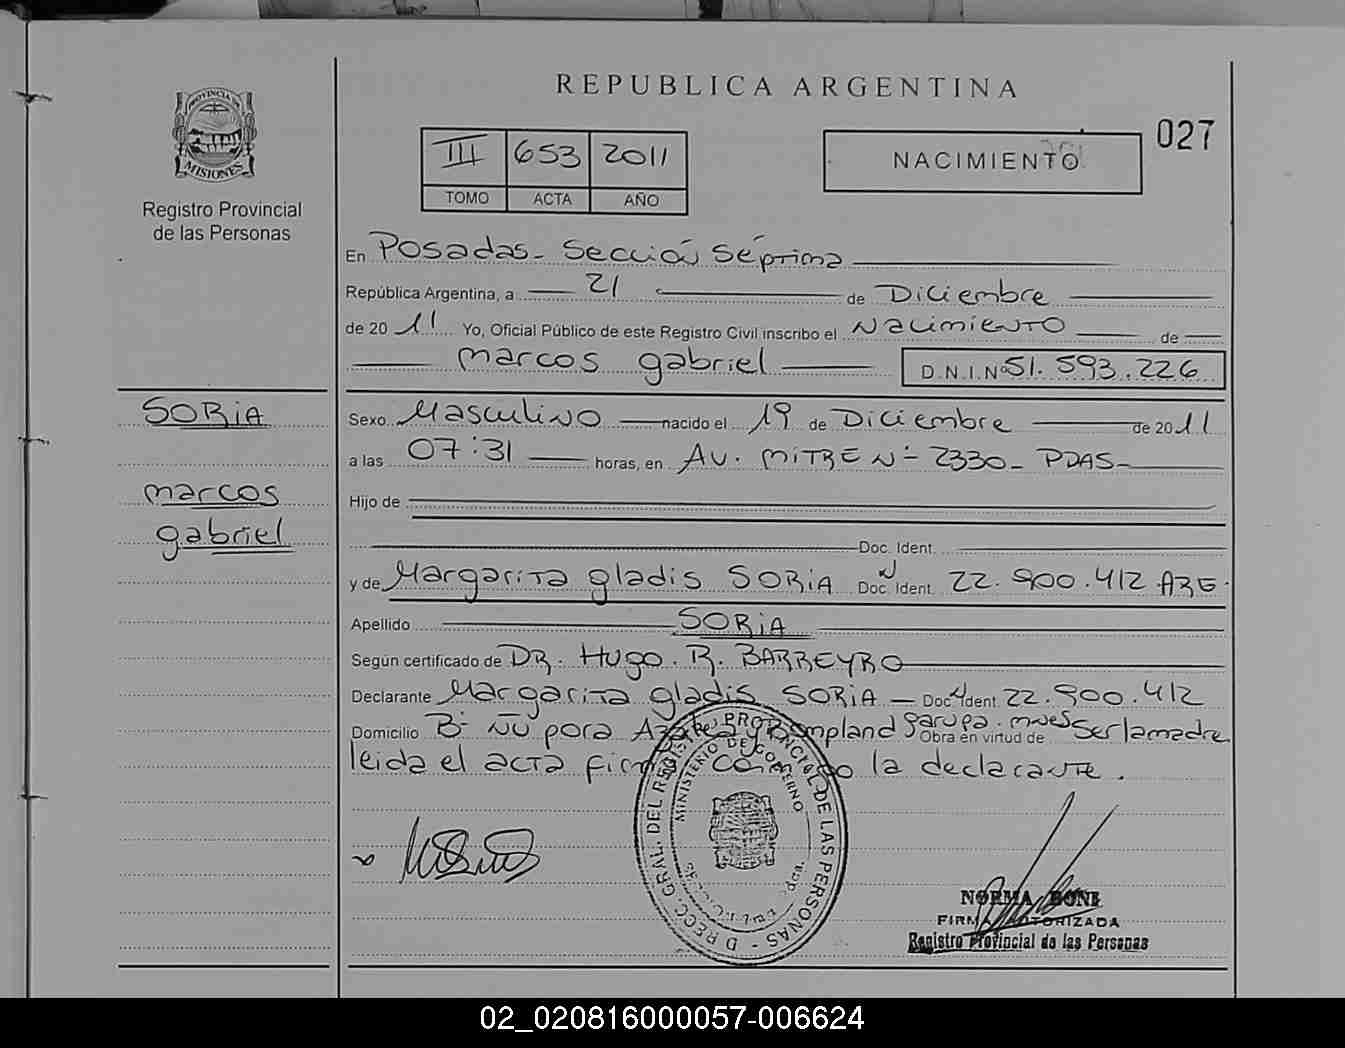 REPUBLICA ARGENTINA
027
III 653 2011
TOMO ACTA AÑO
NACIMIENTO
PROVINCIA DE
MISIONES
Registro Provincial
de las Personas
SORIA
marcos
gabriel
En Posadas - Sección Séptima
República Argentina, a 21 de Diciembre
de 2011 Yo, Oficial Público de este Registro Civil inscribo el Nacimiento de
marcos gabriel D.N.I.Nº 51.593.226
Sexo Masculino nacido el 19 de Diciembre de 2011
a las 07:31 horas, en AV. MITRE Nº 2330 - PDAS -
Hijo de
Doc. Ident.
y de Margarita gladis SORIA Doc. Ident. 22.900.412 ARG.
Apellido SORIA
Según certificado de DR. HUGO. R. BARREYRO
Declarante Margarita gladis SORIA - Doc. Ident. 22.900.412
Domicilio Bº Ñu pora y Bompland Garupa. mnes Obra en virtud de Ser la madre
leida el acta la declarante.
DIRECC. GRAL. DEL REGISTRO PROVINCIAL DE LAS PERSONAS -
MINISTERIO DE GOBIERNO
NORMA BONE
FIRMA AUTORIZADA
Registro Provincial de las Personas
02_020816000057-006624